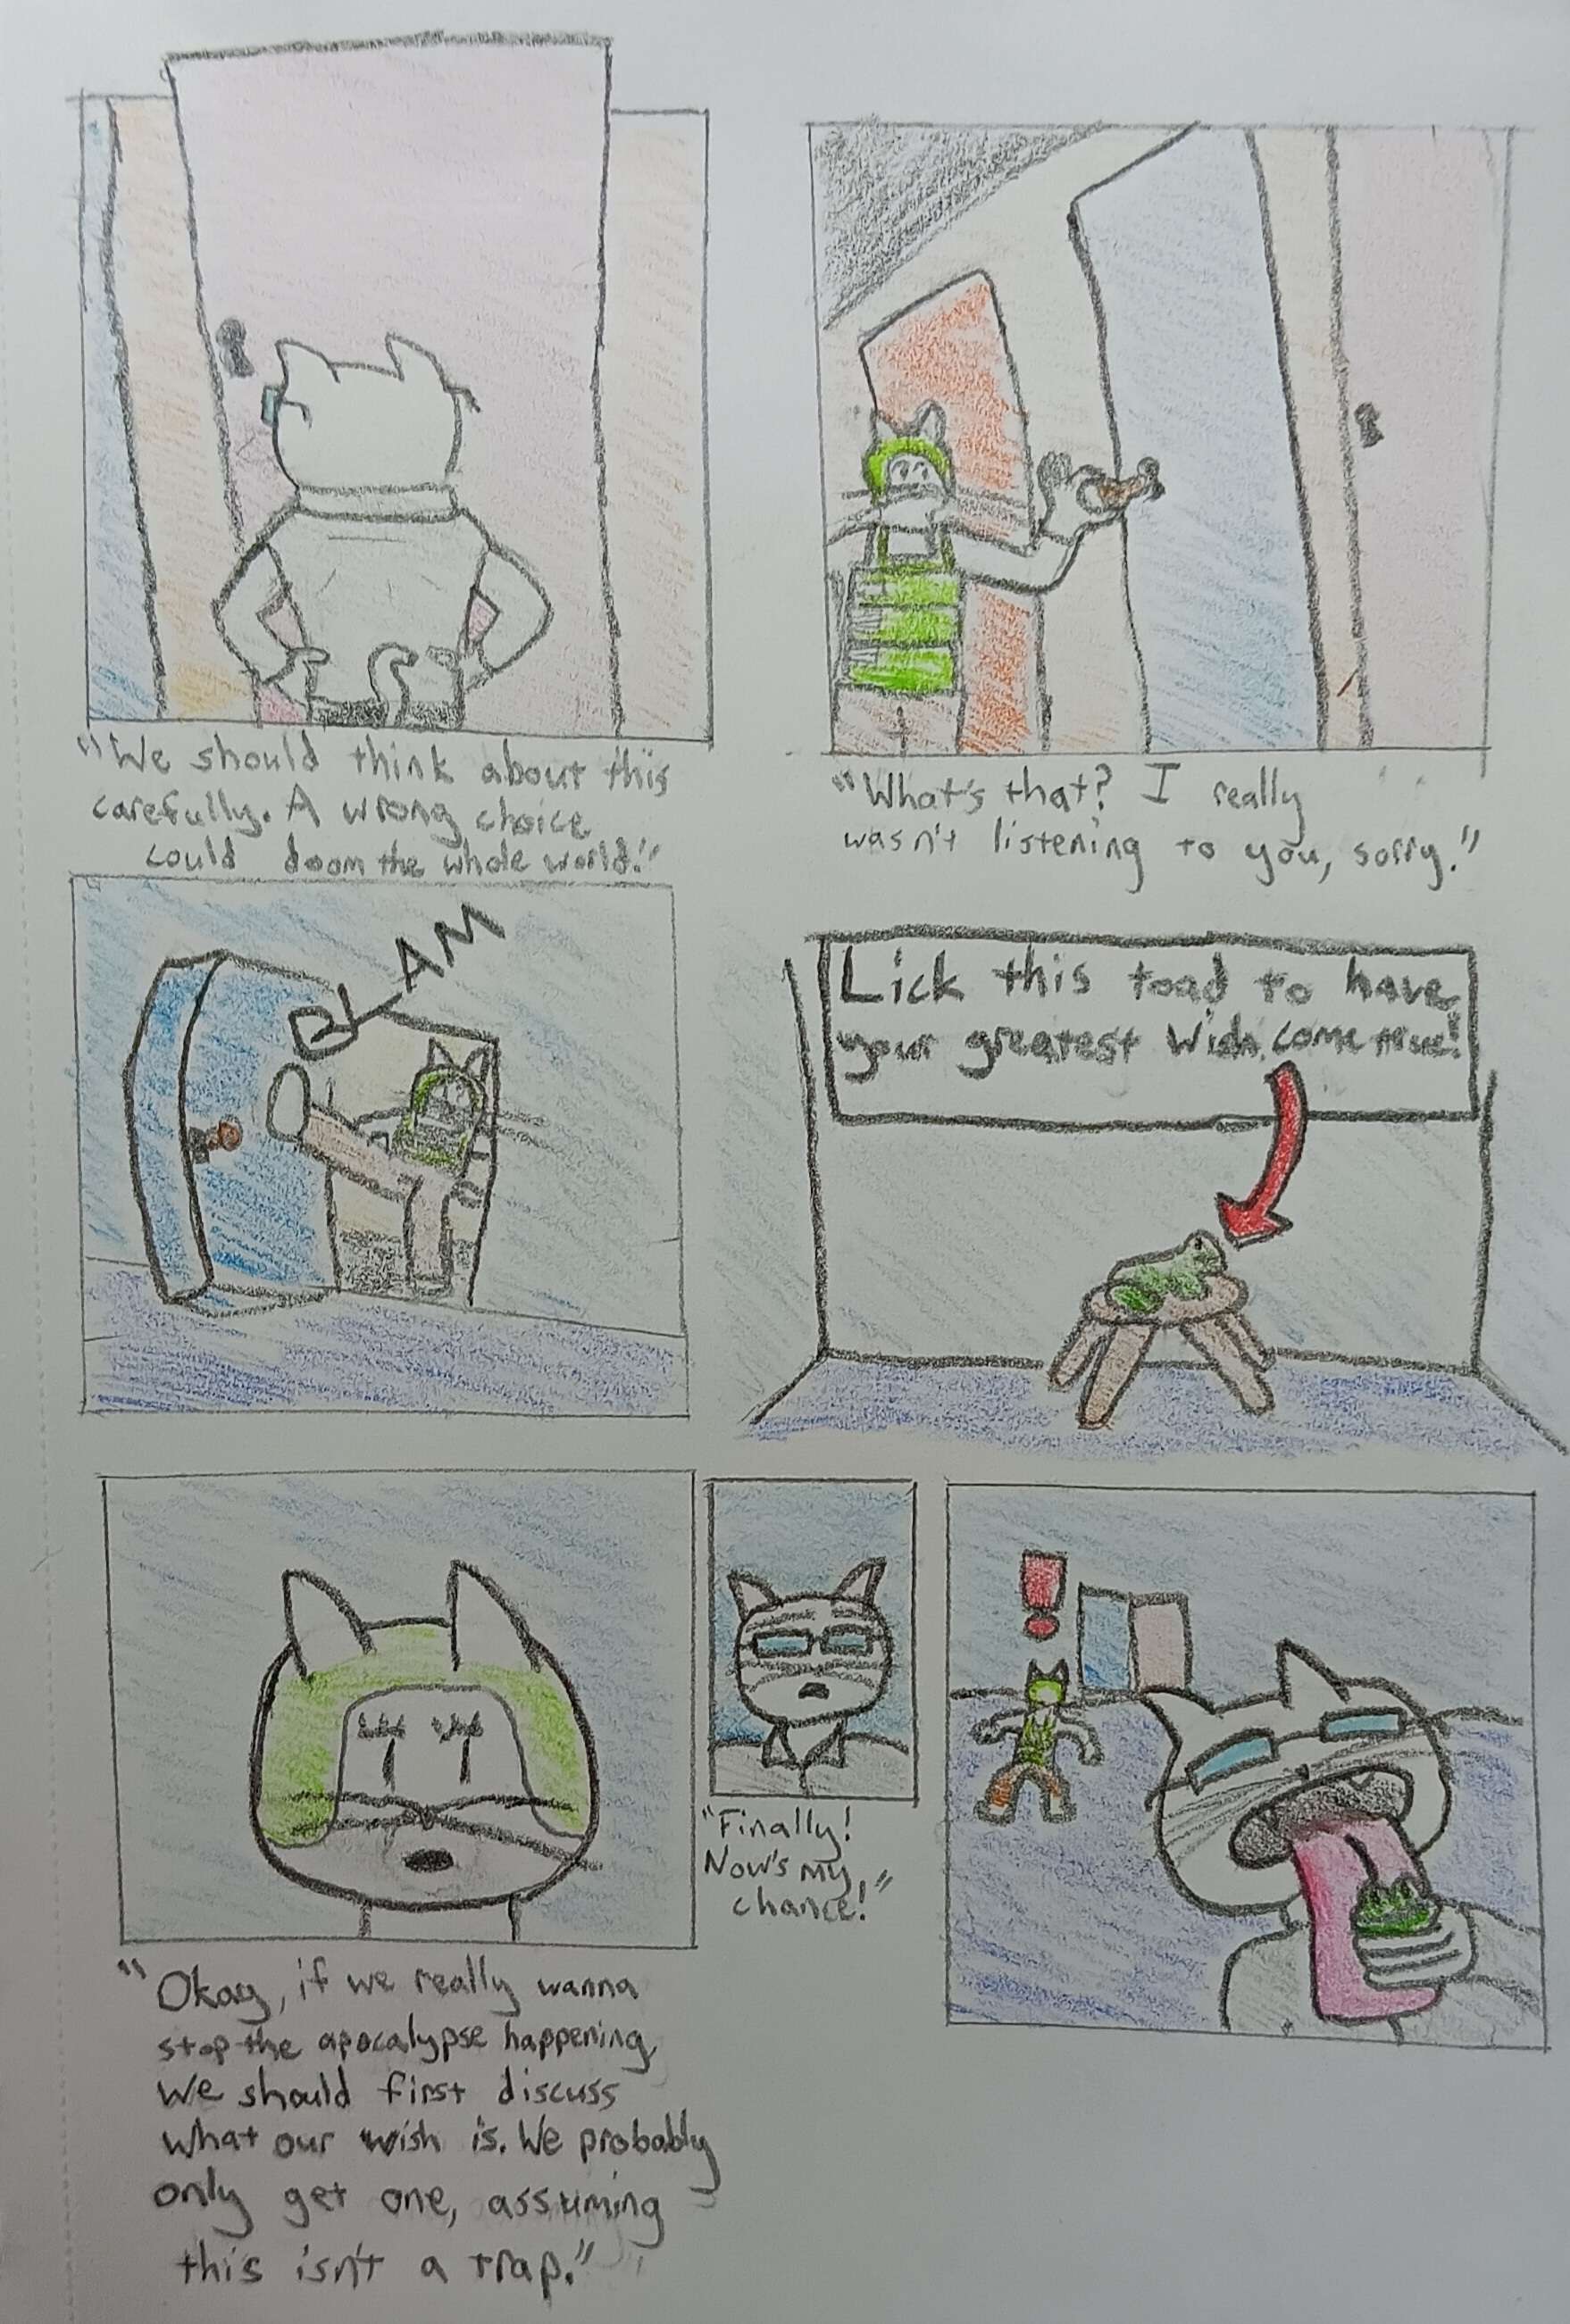 "We should think about this
carefully. A wrong choice
could doom the whole world."
"What's that? I really
wasn't listening to you, sorry."
BLAM
Lick this toad to have
your greatest wish come true!
"Okay, if we really wanna
stop the apocalypse happening,
we should first discuss
what our wish is. We probably
only get one, assuming
this isn't a trap."
"Finally!
Now's my
chance!"
!